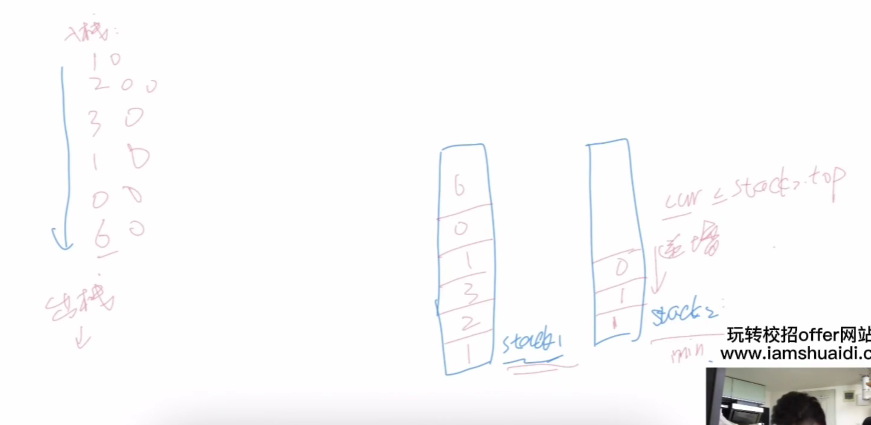 入栈:
1 0
2 0 0
3 0
1 0
0 0
6 0
出栈
6
0
1
3
2
1
stack1
0
1
1
cur ≤ stack2.top
递增
stack2
min
玩转校招offer网站
www.iamshuaidi.c